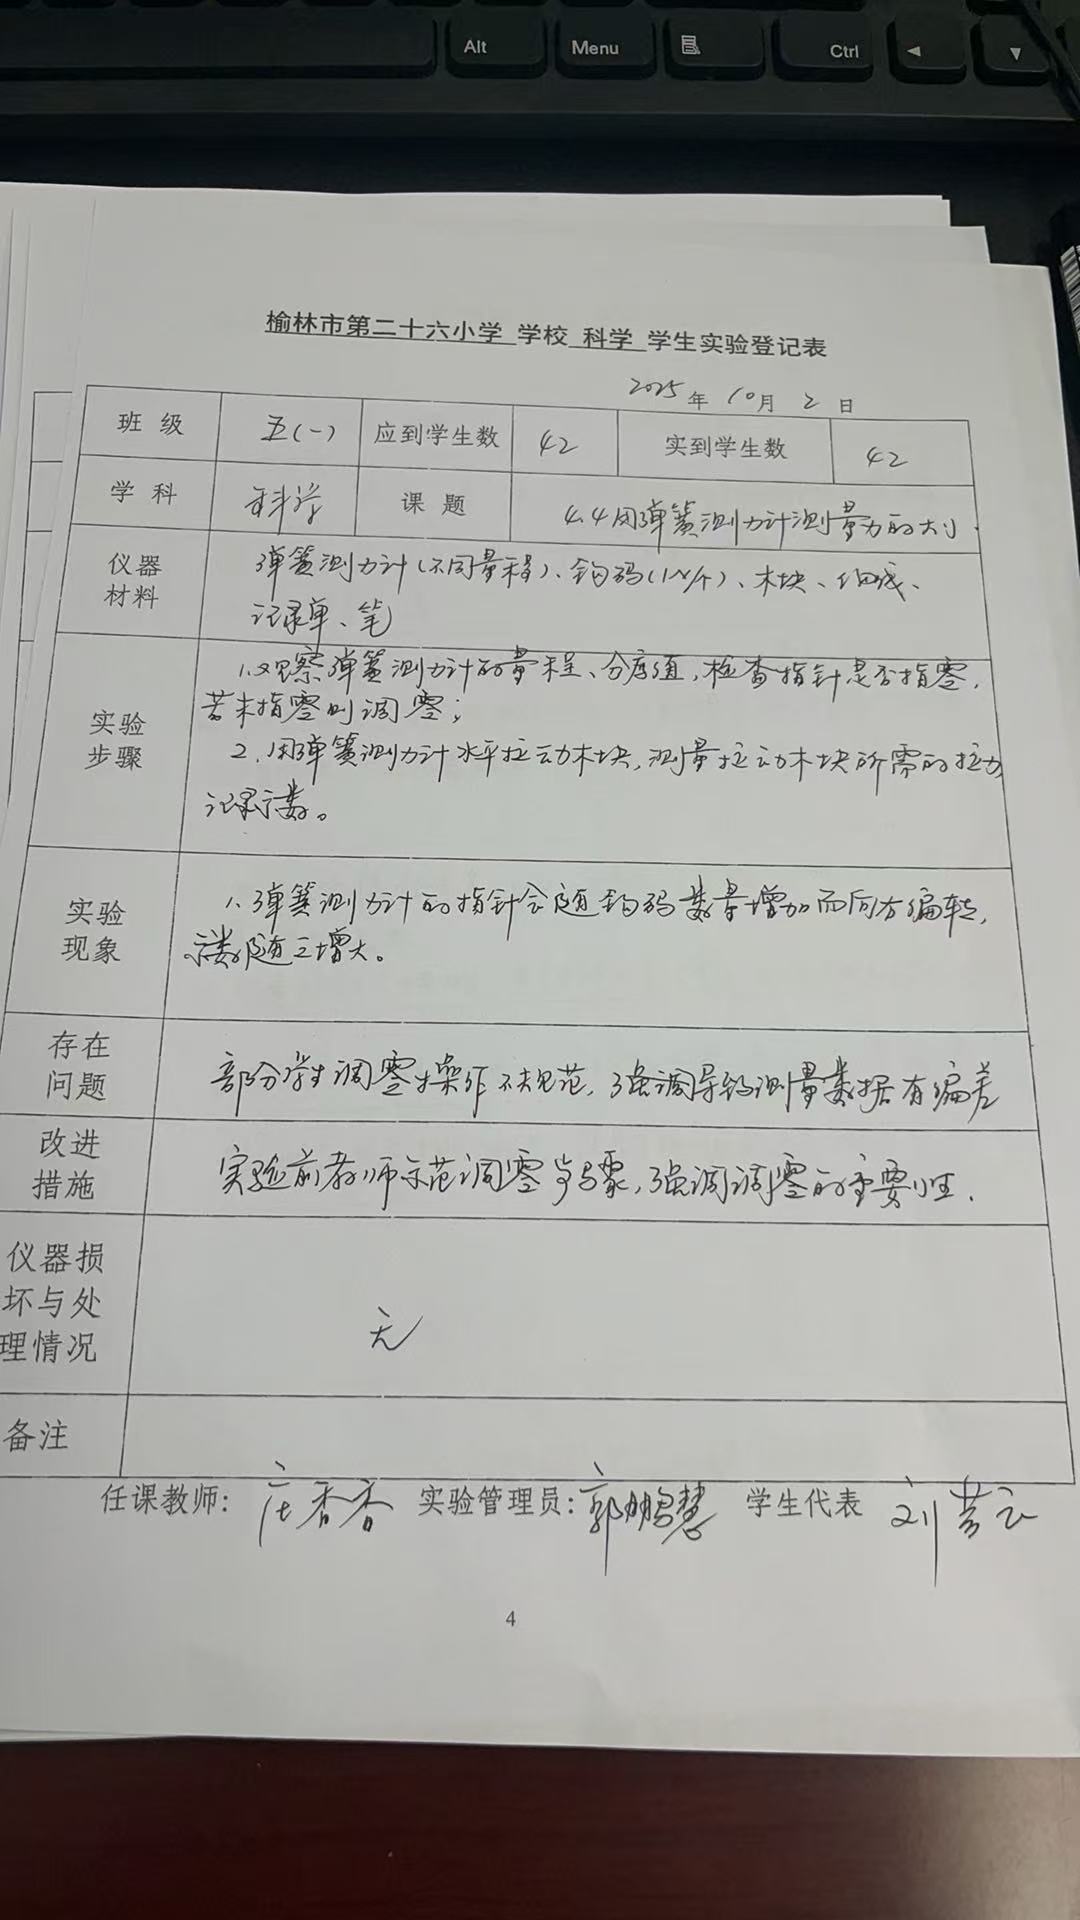 Alt Menu Ctrl
榆林市第二十六小学 学校 科学 学生实验登记表
2025年10月2日
班级 五(一) 应到学生数 42 实到学生数 42
学科 科学 课题 4.4用弹簧测力计测量力的大小.
仪器材料 弹簧测力计(不同量程)、钩码(1N/个)、木块、细线、
记录单、笔
实验步骤 1.观察弹簧测力计的量程、分度值,检查指针是否指零,
若未指零则调零;
2.用弹簧测力计水平拉动木块,测量拉动木块所需的拉力
记录示数。
实验现象 1.弹簧测力计的指针会随钩码数量增加而向右偏转,
示数随之增大。
存在问题 部分学生调零操作不规范,强调导致测量数据有偏差
改进措施 实验前教师示范调零步骤,强调调零的重要性.
仪器损坏与处理情况 无
备注
任课教师: 庄香香 实验管理员: 郭鹏慧 学生代表 刘
4